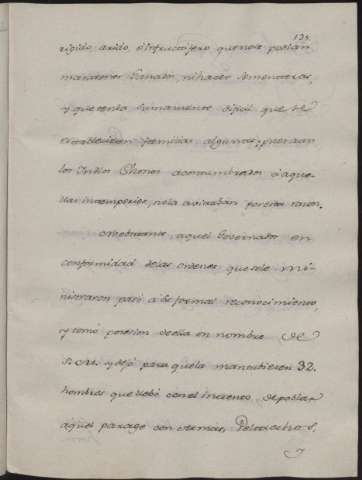 135.
rigido, arido, é infructifero, que no se podian
mantener Ganados, ni hacer Sementeras,
y que tenia sumamente dificil que se
estableciesen familias algunas, pues aun
los Indios Chonos acostumbrados á aque-
llas intemperies, no la avitaban por esta razon.
No obstante aquel Governador en
conformidad de las ordenes que se le mi-
nistraron pasó á su formal reconocimiento,
y tomó posesion de ella en nombre de
S. M. y dejó para que la mantubiesen 32.
hombres que llebó con el intento de poblar
aquel parage con demas Pertrechos.
y